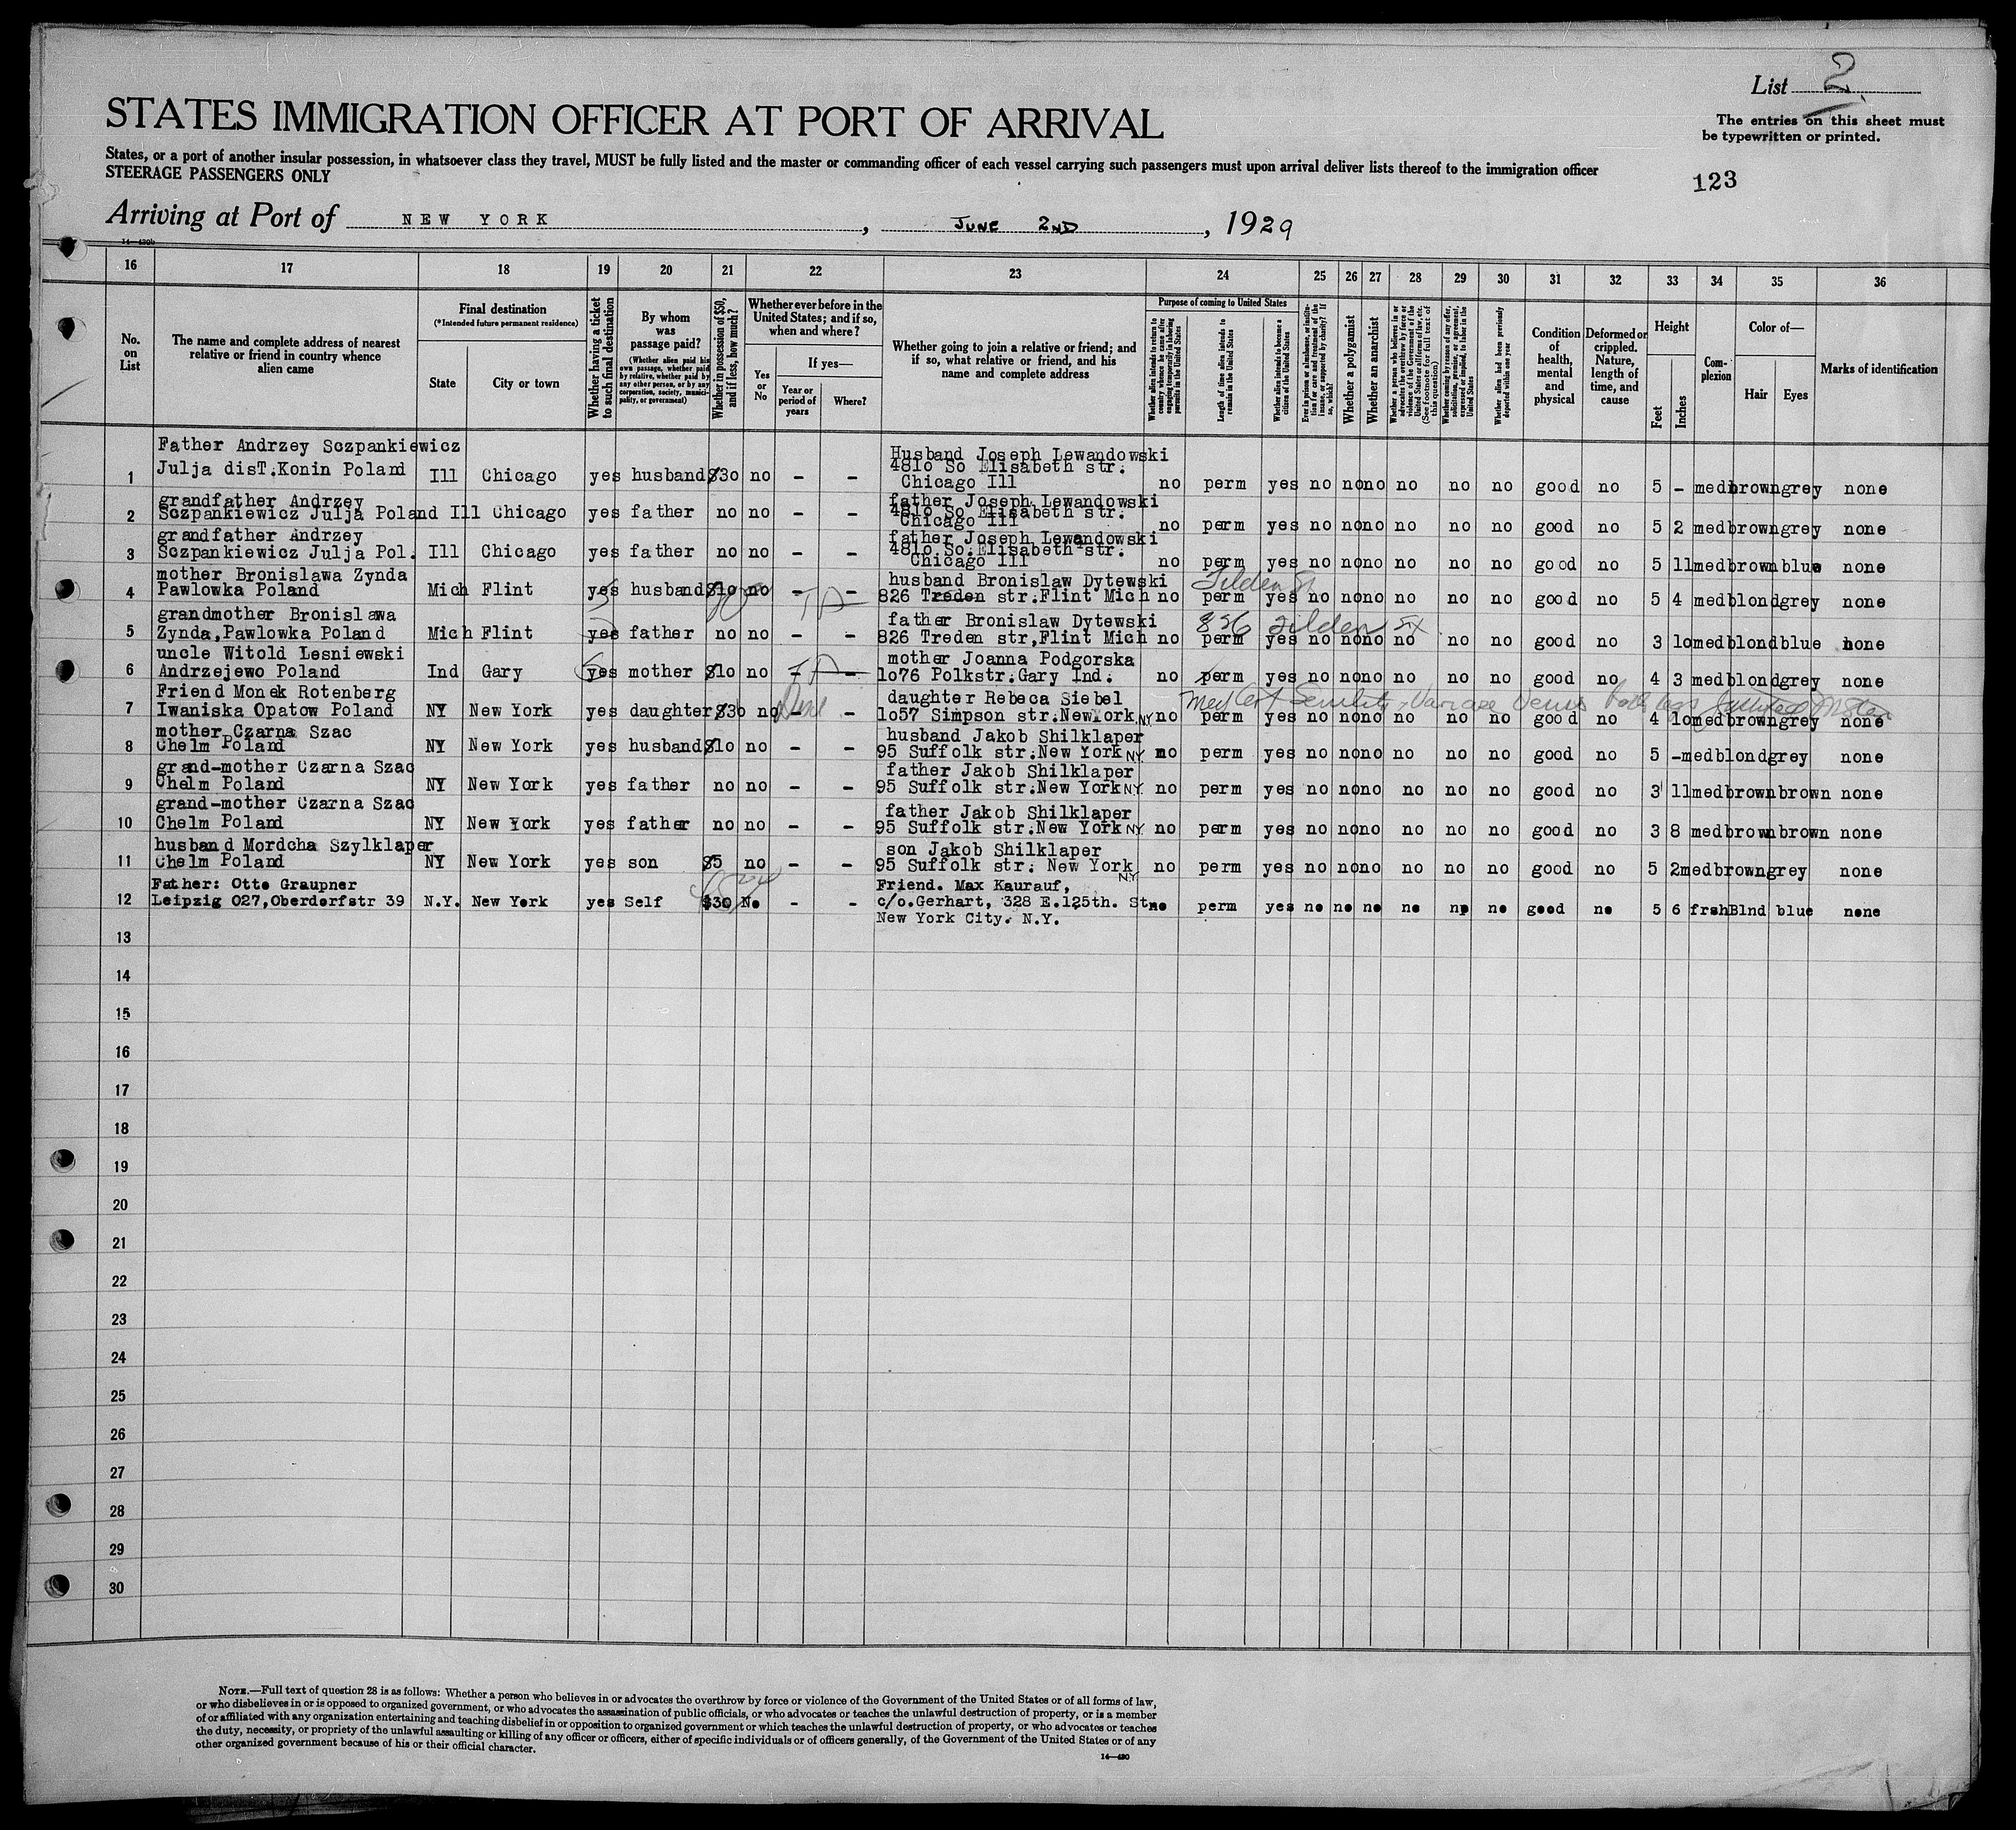 List 2.
STATES IMMIGRATION OFFICER AT PORT OF ARRIVAL
The entries on this sheet must
be typewritten or printed.
States, or a port of another insular possession, in whatsoever class they travel, MUST be fully listed and the master or commanding officer of each vessel carrying such passengers must upon arrival deliver lists thereof to the immigration officer
STEERAGE PASSENGERS ONLY
123
Arriving at Port of NEW YORK, JUNE 2ND, 1929
14—430b
16 17 18 19 20 21 22 23 24 25 26 27 28 29 30 31 32 33 34 35 36
No. on List
The name and complete address of nearest relative or friend in country whence alien came
Final destination
(*Intended future permanent residence)
State
City or town
Whether having a ticket to such final destination
By whom was passage paid?
(Whether alien paid his own passage, whether paid by relative, whether paid by any other person, or by any corporation, society, municipality, or government)
Whether in possession of $50, and if less, how much?
Whether ever before in the United States; and if so, when and where?
Yes or No
If yes—
Year or period of years
Where?
Whether going to join a relative or friend; and if so, what relative or friend, and his name and complete address
Purpose of coming to United States
Whether alien intends to return to country whence he came after engaging temporarily in laboring pursuits in the United States
Length of time alien intends to remain in the United States
Whether alien intends to become a citizen of the United States
Ever in prison or almshouse, or institution for care and treatment of the insane, or supported by charity? If so, which?
Whether a polygamist
Whether an anarchist
Whether a person who believes in or advocates the overthrow by force or violence of the Government of the United States or all forms of law, etc. (See footnote for full text of this question)
Whether coming by reason of any offer, solicitation, promise, or agreement, expressed or implied, to labor in the United States
Whether alien had been previously deported within one year
Condition of health, mental and physical
Deformed or crippled. Nature, length of time, and cause
Height
Feet
Inches
Complexion
Color of—
Hair
Eyes
Marks of identification
Father Andrzey Sczpankiewicz Husband Joseph Lewandowski
1 Julja disT.Konin Poland Ill Chicago yes husband $30 no - - 481o So Elisabeth str. Chicago Ill no perm yes no no no no no no good no 5 - med brown grey none
grandfather Andrzey father Joseph Lewandowski
2 Sczpankiewicz Julja Poland Ill Chicago yes father no no - - 481o So Elisabeth str. Chicago Ill no perm yes no no no no no no good no 5 2 med brown grey none
grandfather Andrzey father Joseph Lewandowski
3 Sczpankiewicz Julja Pol. Ill Chicago yes father no no - - 481o So.Elisabeth str. Chicago Ill no perm yes no no no no no no good no 5 11 med brown blue none
mother Bronislawa Zynda husband Bronislaw Dytewski Tilden St
4 Pawlowka Poland Mich Flint yes husband $1o no TA 826 Treden str.Flint Mich no perm yes no no no no no no good no 5 4 med blond grey none
grandmother Bronislawa father Bronislaw Dytewski 826 Tilden St
5 Zynda,Pawlowka Poland Mich Flint yes father no no - - 826 Treden str,Flint Mich no perm yes no no no no no no good no 3 1o med blond blue none
uncle Witold Lesniewski mother Joanna Podgorska
6 Andrzejewo Poland Ind Gary yes mother $1o no TA 1o76 Polkstr.Gary Ind. no perm yes no no no no no no good no 4 3 med blond grey none
Friend Monek Rotenberg daughter Rebeca Siebel Med Cert Senility, Varicose Veins both legs
7 Iwaniska Opatow Poland NY New York yes daughter $30 no - - 1o57 Simpson str.NewYork.NY no perm yes no no no no no no good no 4 1o med brown grey none
mother Czarna Szac husband Jakob Shilklaper
8 Chelm Poland NY New York yes husband $1o no - - 95 Suffolk str.New York NY no perm yes no no no no no no good no 5 - med blond grey none
grand-mother Czarna Szac father Jakob Shilklaper
9 Chelm Poland NY New York yes father no no - - 95 Suffolk str.New York NY no perm yes no no no no no no good no 3 11 med brown brown none
grand-mother Czarna Szac father Jakob Shilklaper
10 Chelm Poland NY New York yes father no no - - 95 Suffolk str.New York NY no perm yes no no no no no no good no 3 8 med brown brown none
husband Mordcha Szylklaper son Jakob Shilklaper
11 Chelm Poland NY New York yes son $5 no - - 95 Suffolk str. New York NY no perm yes no no no no no no good no 5 2 med brown grey none
Father: Otto Graupner Friend. Max Kaurauf,
12 Leipzig O27,Oberdorfstr 39 N.Y. New York yes Self $30 No - - c/o.Gerhart, 328 E.125th. St no perm yes no no no no no no good no 5 6 frsh Blnd blue none
New York City. N.Y.
13
14
15
16
17
18
19
20
21
22
23
24
25
26
27
28
29
30
NOTE.—Full text of question 28 is as follows: Whether a person who believes in or advocates the overthrow by force or violence of the Government of the United States or of all forms of law,
or who disbelieves in or is opposed to organized government, or who advocates the assassination of public officials, or who advocates or teaches the unlawful destruction of property, or is a member
of or affiliated with any organization entertaining and teaching disbelief in or opposition to organized government or which teaches the unlawful destruction of property, or who advocates or teaches
the duty, necessity, or propriety of the unlawful assaulting or killing of any officer or officers, either of specific individuals or of officers generally, of the Government of the United States or of any
other organized government because of his or their official character.
14—430